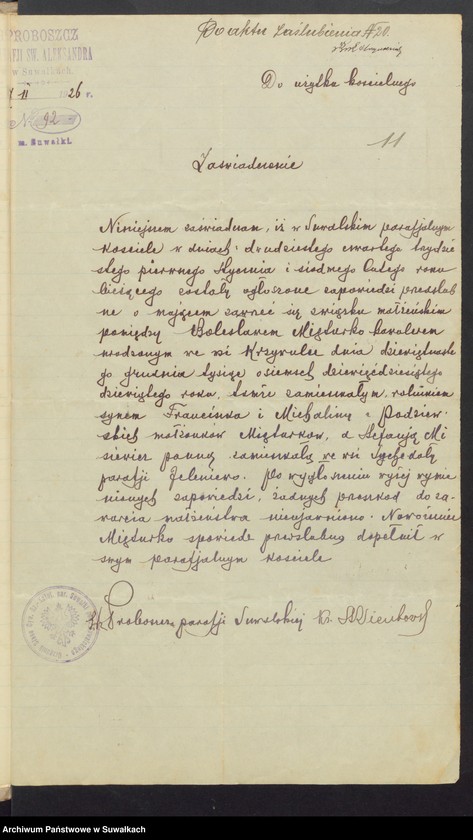 PROBOSZCZ
PARAFJI ŚW. ALEKSANDRA
w Suwałkach.
11 1926 r.
№ 92
m. Suwałki.
Do aktu Zaślubienia № 20.
Do użytku kościelnego
11
Zaświadczenie
Niniejszem zaświadczam, iż w Suwalskim parafjalnym
kościele w dniach: dwudziestego czwartego trzydzie
stego pierwszego Stycznia i siódmego Lutego roku
bieżącego zostały ogłoszone zapowiedzi przedślub
ne o mającem zawrzeć się związku małżeńskim
pomiędzy Bolesławem Miszturko kawalerem
urodzonym we wsi Krzywulce dnia dziewiętnaste
go grudnia tysiąc osiemset dziewięćdziesiątego
dziewiątego roku, tamże zamieszkałym, rolnikiem
synem Franciszka i Michaliny z Podziew
skich małżonków Miszturków, a Stefanją Mi
siewicz panną zamieszkałą we wsi
parafji Jeleniewo. Po wygłoszeniu wyżej wymie
nionych zapowiedzi, żadnych przeszkód do za-
warcia małżeństwa nieujawniono. Narzeczony
Miszturko spowiedź przedślubną dopełnił w
swym parafjalnym kościele
Proboszcz parafji Suwalskiej Ks.
Archiwum Państwowe w Suwałkach